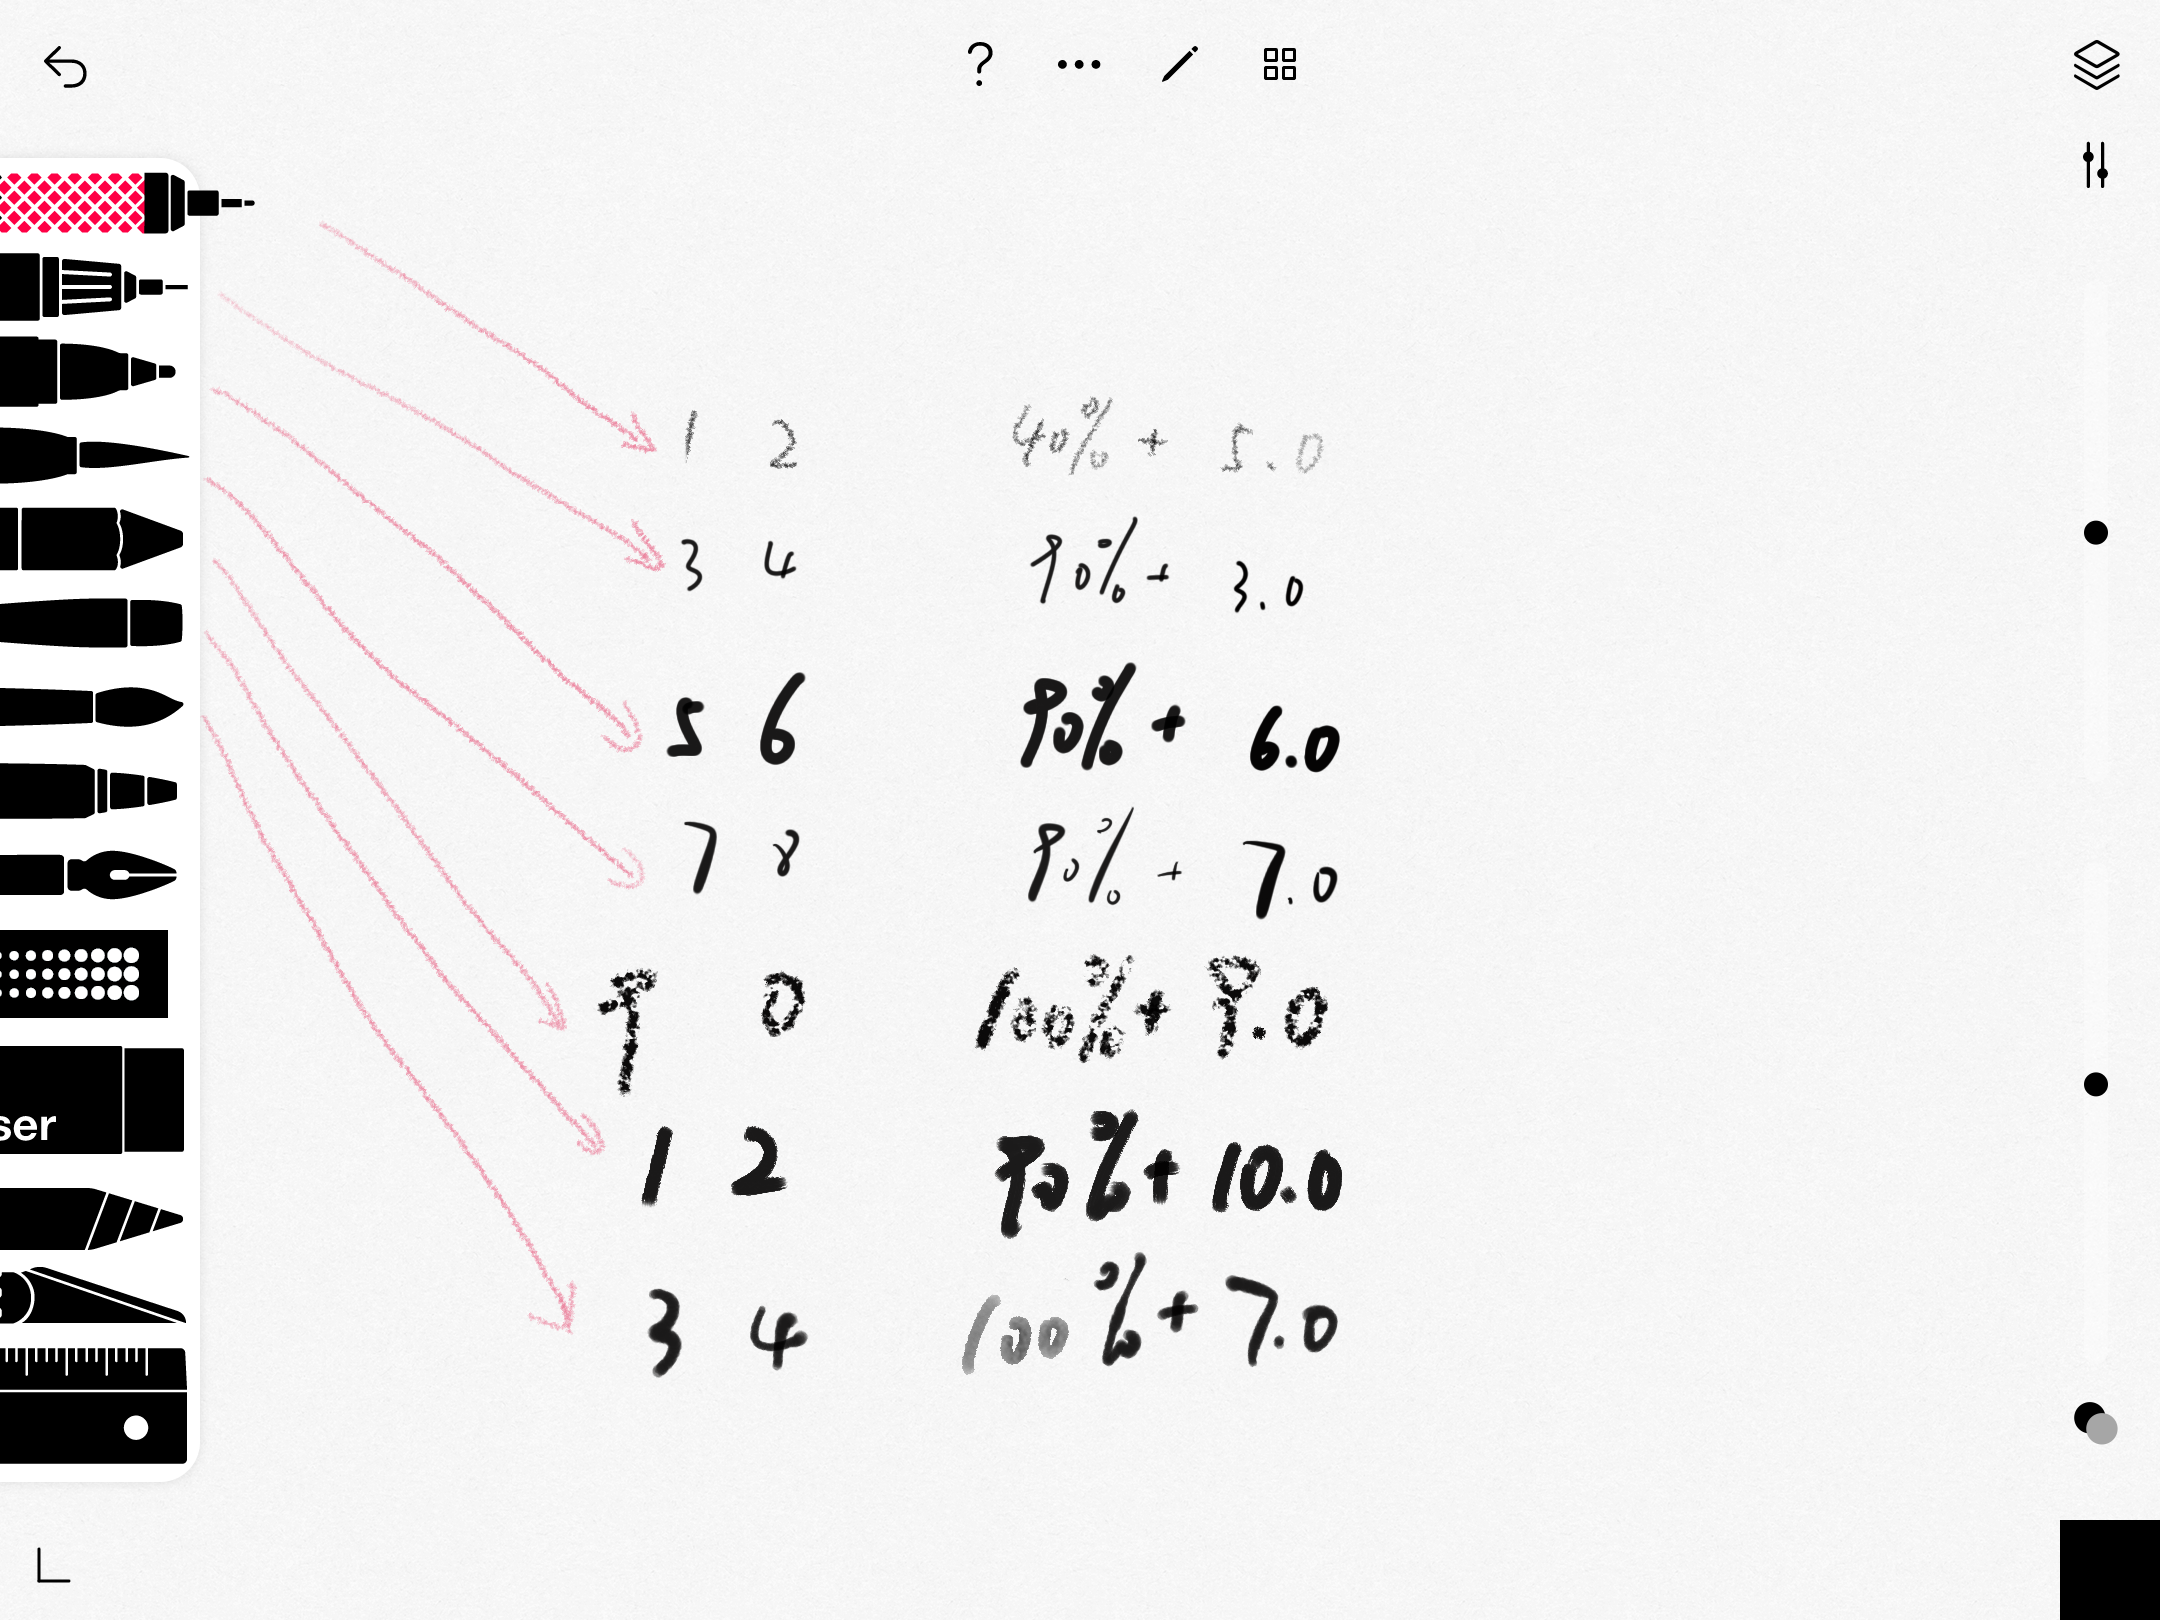 ?
1 2 40% + 5.0
3 4 90% + 3.0
5 6 90% + 6.0
7 8 90% + 7.0
9 0 100% + 9.0
ser
1 2 90% + 10.0
3 4 100% + 7.0